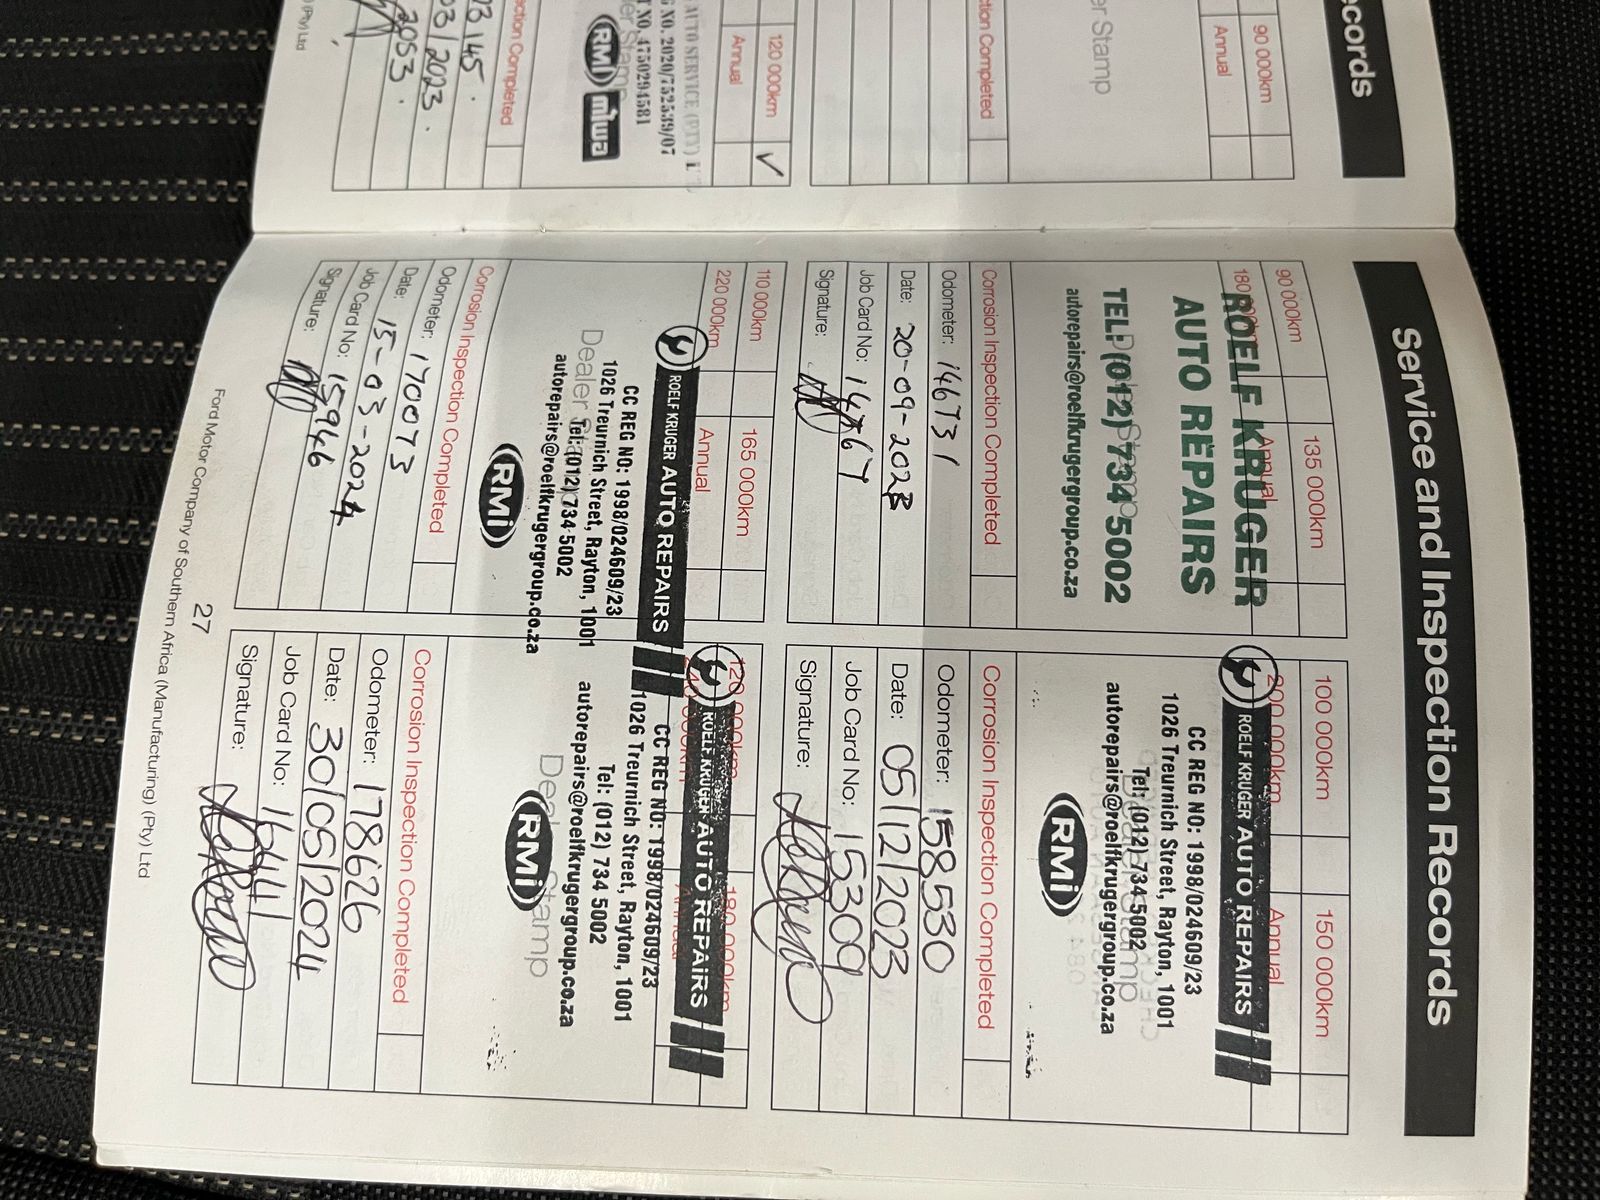 ecords
90 000km
Annual
er Stamp
ction Completed
120 000km ✓
Annual
AUTO SERVICE (PTY)
NO. 2020/752539/07
NO 4750294581
RMI
mwa
ction Completed
23 145.
03/2023.
2053.
(Pty) Ltd
Service and Inspection Records
90 000km 135 000km
180 Annual
ROELF KRUGER
AUTO REPAIRS
TEL: (012) 734 5002
autorepairs@roelfkrugergroup.co.za
Corrosion Inspection Completed
Odometer: 146731
Date: 20-09-2023
Job Card No:
Signature:
100 000km 150 000km
200 000km Annual
ROELF KRUGER AUTO REPAIRS
CC REG NO: 1998/024609/23
1026 Treurnich Street, Rayton, 1001
Tel: (012) 734 5002
autorepairs@roelfkrugergroup.co.za
RMi
Corrosion Inspection Completed
Odometer: 158530
Date: 05/12/2023
Job Card No: 15309
Signature:
110 000km 165 000km
220 000km Annual
ROELF KRUGER AUTO REPAIRS
CC REG NO: 1998/024609/23
1026 Treurnich Street, Rayton, 1001
Dealer Tel: (012) 734 5002
autorepairs@roelfkrugergroup.co.za
RMi
Corrosion Inspection Completed
Odometer: 170073
Date: 15-03-2024
Job Card No: 15946
Signature:
120 000km 180 000km
Annual
ROELF KRUGER AUTO REPAIRS
CC REG NO: 1998/024609/23
1026 Treurnich Street, Rayton, 1001
Tel: (012) 734 5002
autorepairs@roelfkrugergroup.co.za
Dealer Stamp
RMi
Corrosion Inspection Completed
Odometer: 178626
Date: 30/05/2024
Job Card No: 16441
Signature:
27
Ford Motor Company of Southern Africa (Manufacturing) (Pty) Ltd